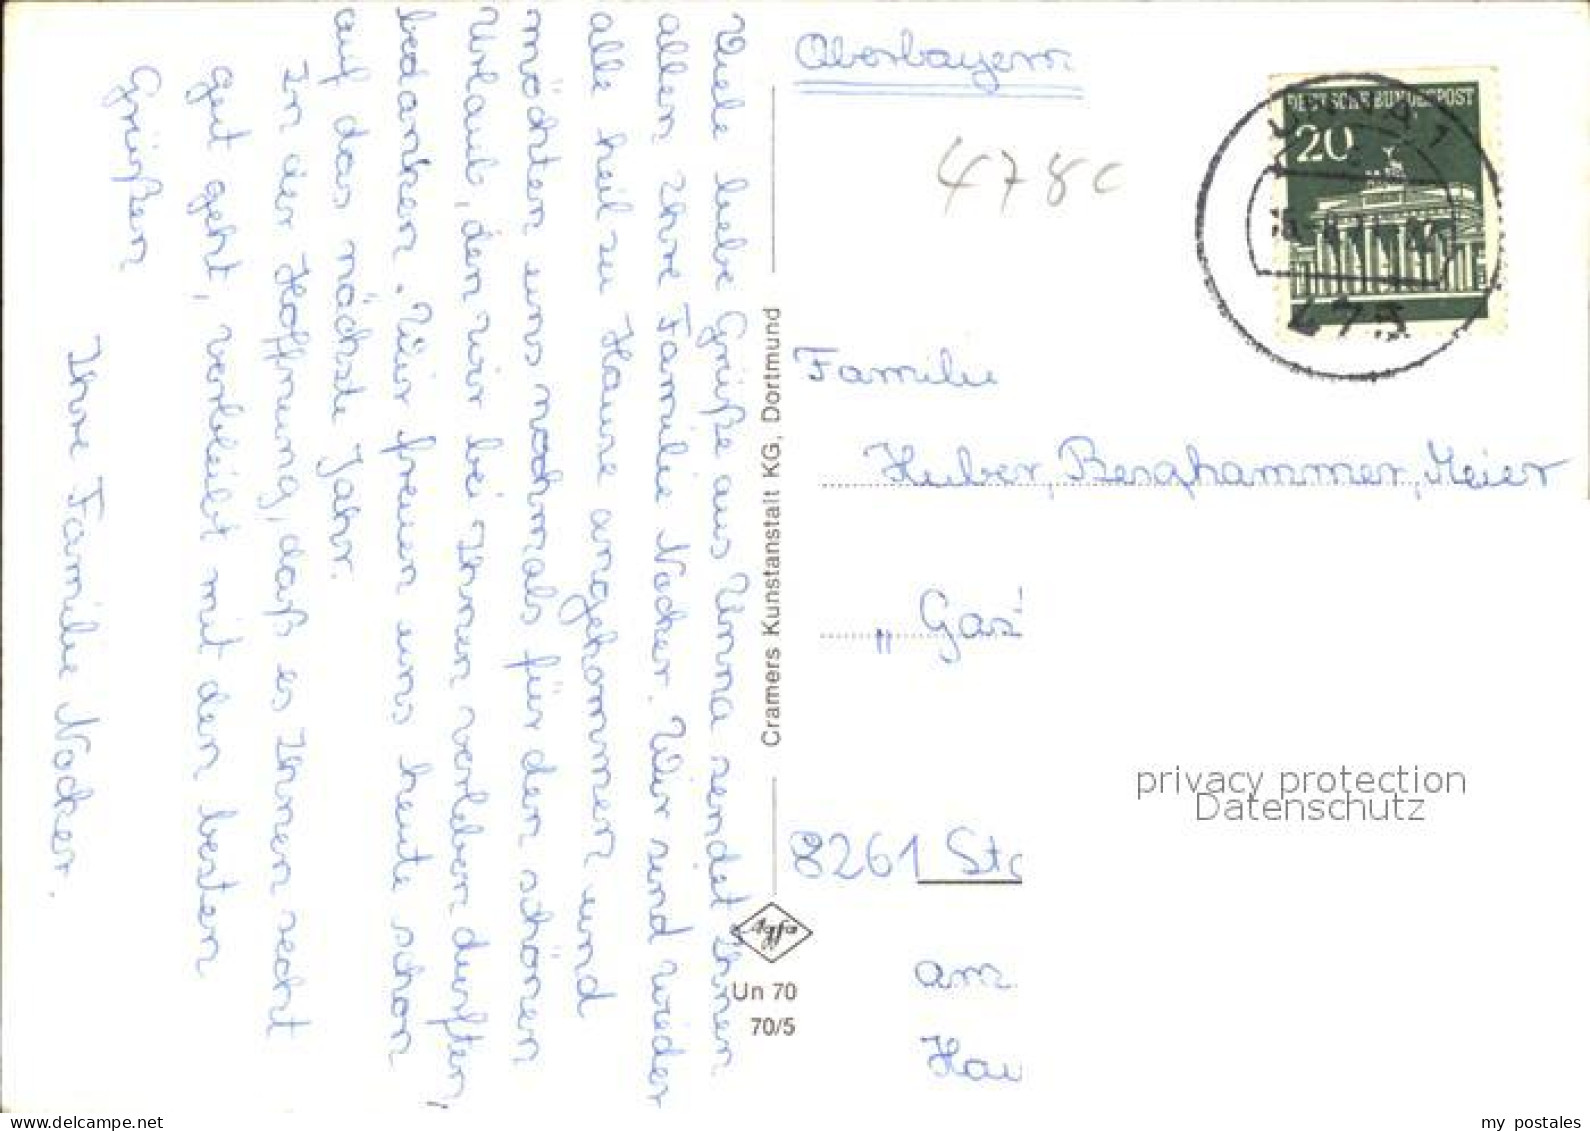 Viele liebe Grüße aus Unna sendet Ihnen
allen Ihre Familie Nocker. Wir sind wieder
alle heil zu Hause angekommen und
möchten uns nochmals für den schönen
Urlaub, den wir bei Ihnen verleben durften,
bedanken. Wir freuen uns heute schon
auf das nächste Jahr.
In der Hoffnung, daß es Ihnen recht
gut geht, verbleibt mit den besten
Grüßen
Ihre Familie Nocker.
Cramers Kunstanstalt KG, Dortmund
Agfa
Un 70
70/5
Oberbayern
478c
DEUTSCHE BUNDESPOST
20
UNNA 1
475
Familie
Huber, Berghammer, Meier
„Gas
8261 St
am
Hau
privacy protection
Datenschutz
www.delcampe.net
my_postales